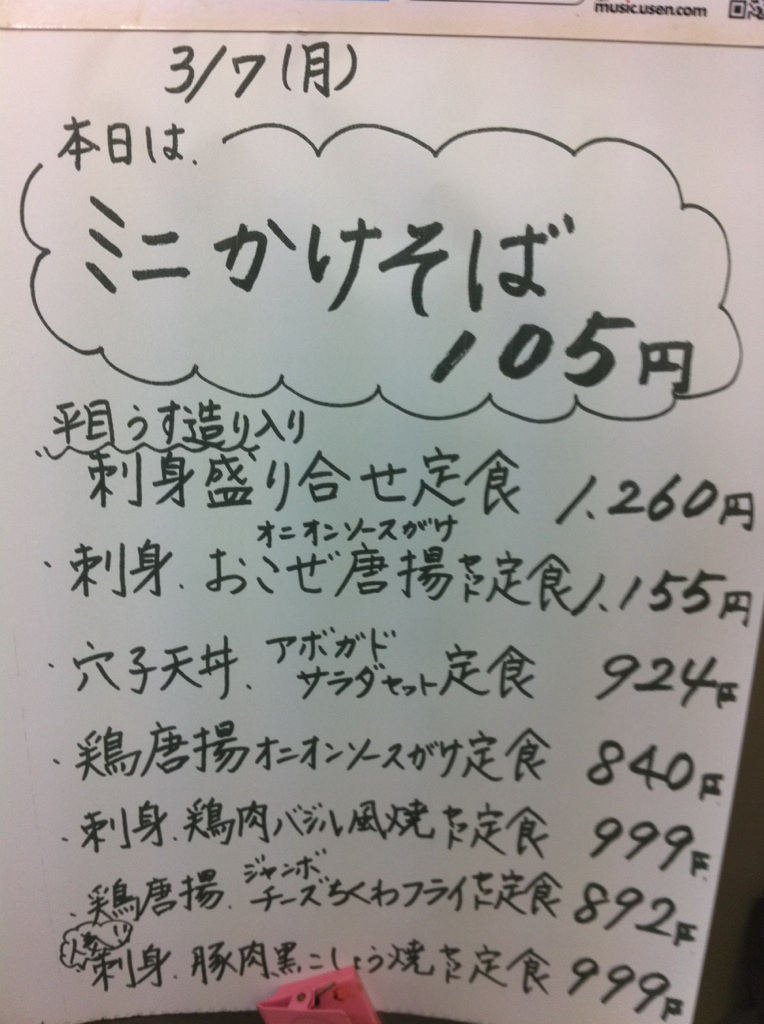 musicusen.com
3/7(月)
本日は、
ミニかけそば
105円
平目うす造り入り
刺身盛り合せ定食 1,260円
オニオンソースがけ
・刺身、おこぜ唐揚セット定食 1,155円
・穴子天丼、アボガドサラダセット定食 924円
・鶏唐揚オニオンソースがけ定食 840円
・刺身、鶏肉バジル風焼セット定食 999円
・鶏唐揚、ジャンボチーズちくわフライセット定食 892円
刺身、豚肉黒こしょう焼セット定食 999円